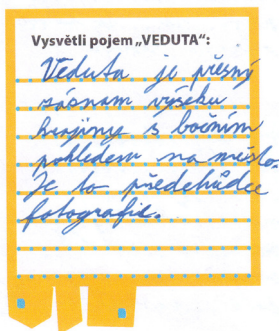 Vysvětli pojem „VEDUTA“:
Veduta je přesný
záznam výseku
krajiny s bočním
pohledem na město.
Je to předchůdce
fotografie.